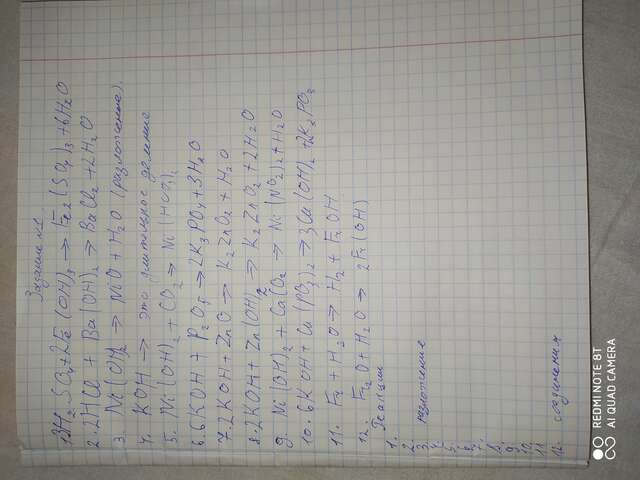 Задание №1
1. 3H2SO4 + 2Fe(OH)3 → Fe2(SO4)3 + 6H2O
2. 2HCl + Ba(OH)2 → BaCl2 + 2H2O
3. Ni(OH)2 → NiO + H2O (разложение).
4. KOH → это длительное деление
5. Ni(OH)2 + CO2 → Ni(HCO3)2
6. 6KOH + P2O5 → 2K3PO4 + 3H2O
7. 2KOH + ZnO → K2ZnO2 + H2O
8. 2KOH + Zn(OH)2 → K2ZnO2 + 2H2O
9. Ni(OH)2 + Ca(O2 → Ni(NO2)2 + H2O
10. 6KOH + Ca(PO3)2 → 3Ca(OH)2 + 2K3PO3
11. Fr + H2O → H2 + FrOH
12. Fr2O + H2O → 2Fr(OH)
Реакции
1.
2. разложение
3.
4.
5.
6.
7.
8.
9.
10.
11.
12. соединения
REDMI NOTE 8T
AI QUAD CAMERA